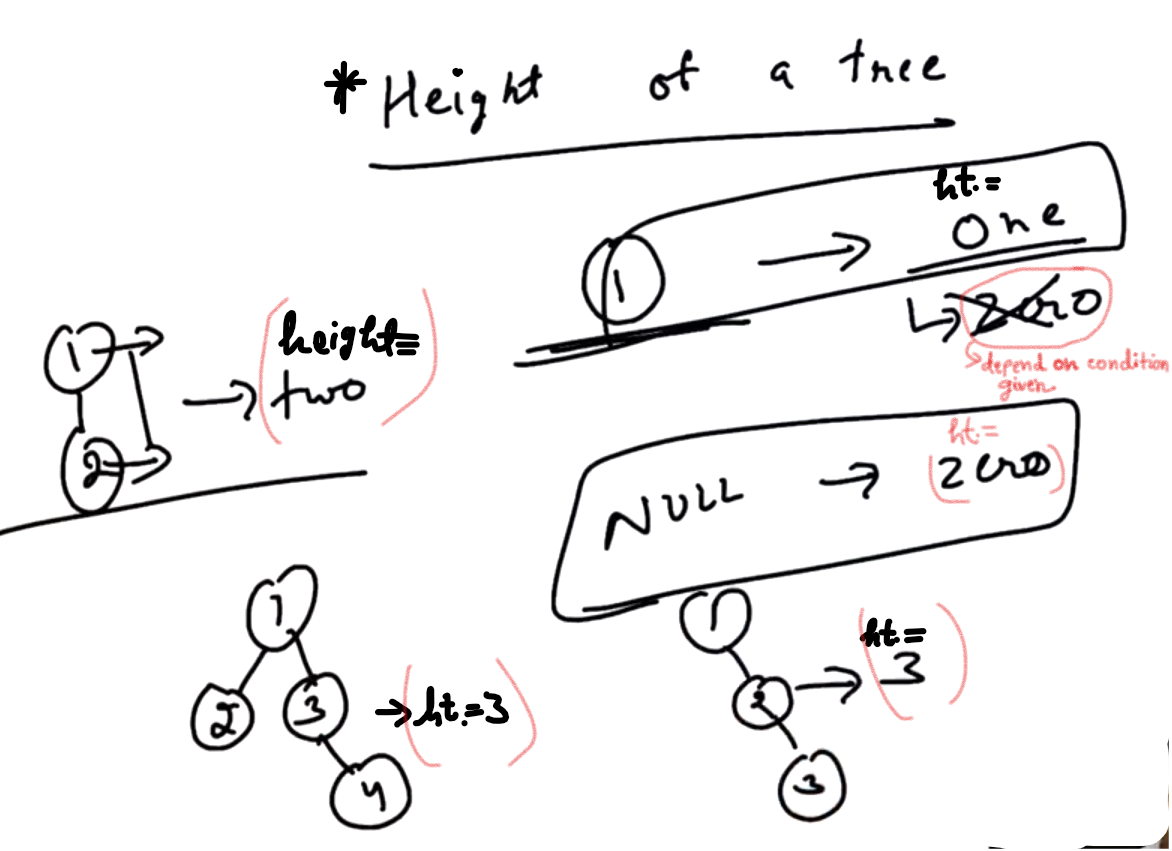 * Height of a tree
1 → ht.= One
↳ zero
↳ depend on condition
given
1
2
→ (height=
two)
NULL → ht.=
(zero)
1
2 3
4
→ (ht.=3)
1
2
3
→ (ht=
3)